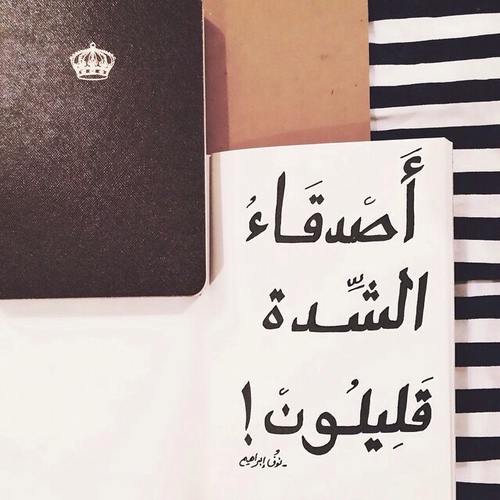 أَصْدقَاءُ
الشِّدة
قَلِيلُونْ!
- نوف إبراهيم